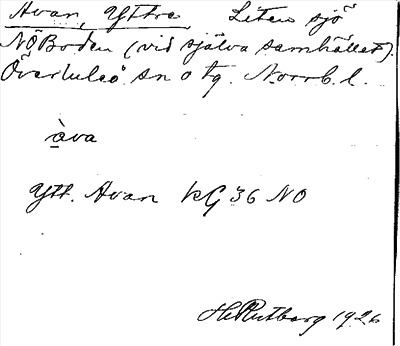 Avan, Yttre Liten sjö
NÖ Boden (vid själva samhället).
Överluleå sn o tg. Norrb. l.
àva
Ytt. Avan KG 36 NO
H Rutberg 1926